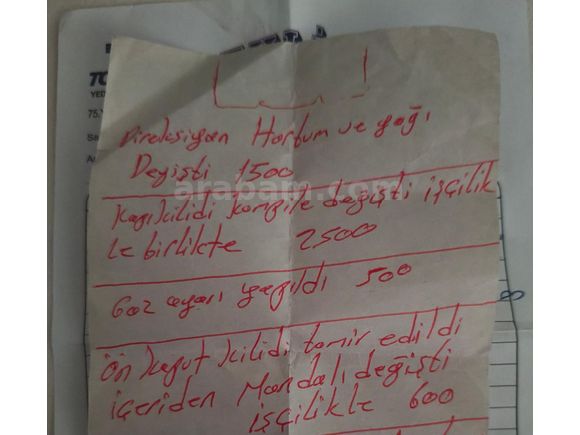 TO
YED
75.Y
Direksiyon Hortum ve yağı
Değişti 1500
Kapı kilidi komple değişti işçilik
le birlikte 2500
Goz ayarı yapıldı 500
Ön kaput kilidi tamir edildi
içeriden Mandalı değişti
işçilikle 600
arabam.com